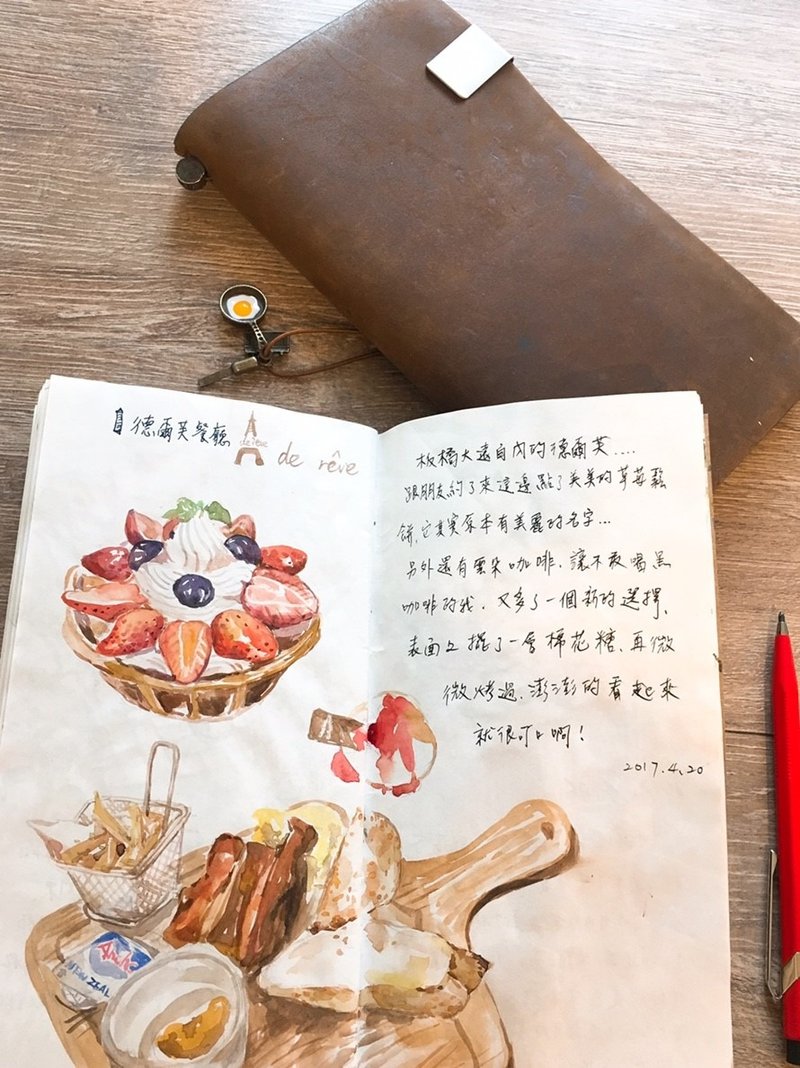 德爾芙餐廳
de rêve
de rêve
板橋大遠百內的德爾芙....
跟朋友約了來這邊點了美美的草莓鬆
餅,它其實原本有美麗的名字...
另外還有雲朵咖啡,讓不敢喝黑
咖啡的我,又多了一個新的選擇,
表面上擺了一層棉花糖,再微
微烤過,澎澎的看起來
就很可口啊!
2017.4.20
Anchor
NEW ZEAL